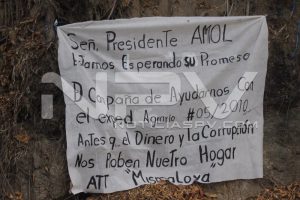 Señ. Presidente AMOL
Estamos Esperando su Promesa
D Campaña de Ayudarnos Con
el exed Agrario #05/2010
Antes q el Dinero y la Corrupción
Nos Roben Nuetro Hogar
ATT "Mismaloya"
NPV
NOTICIASPV